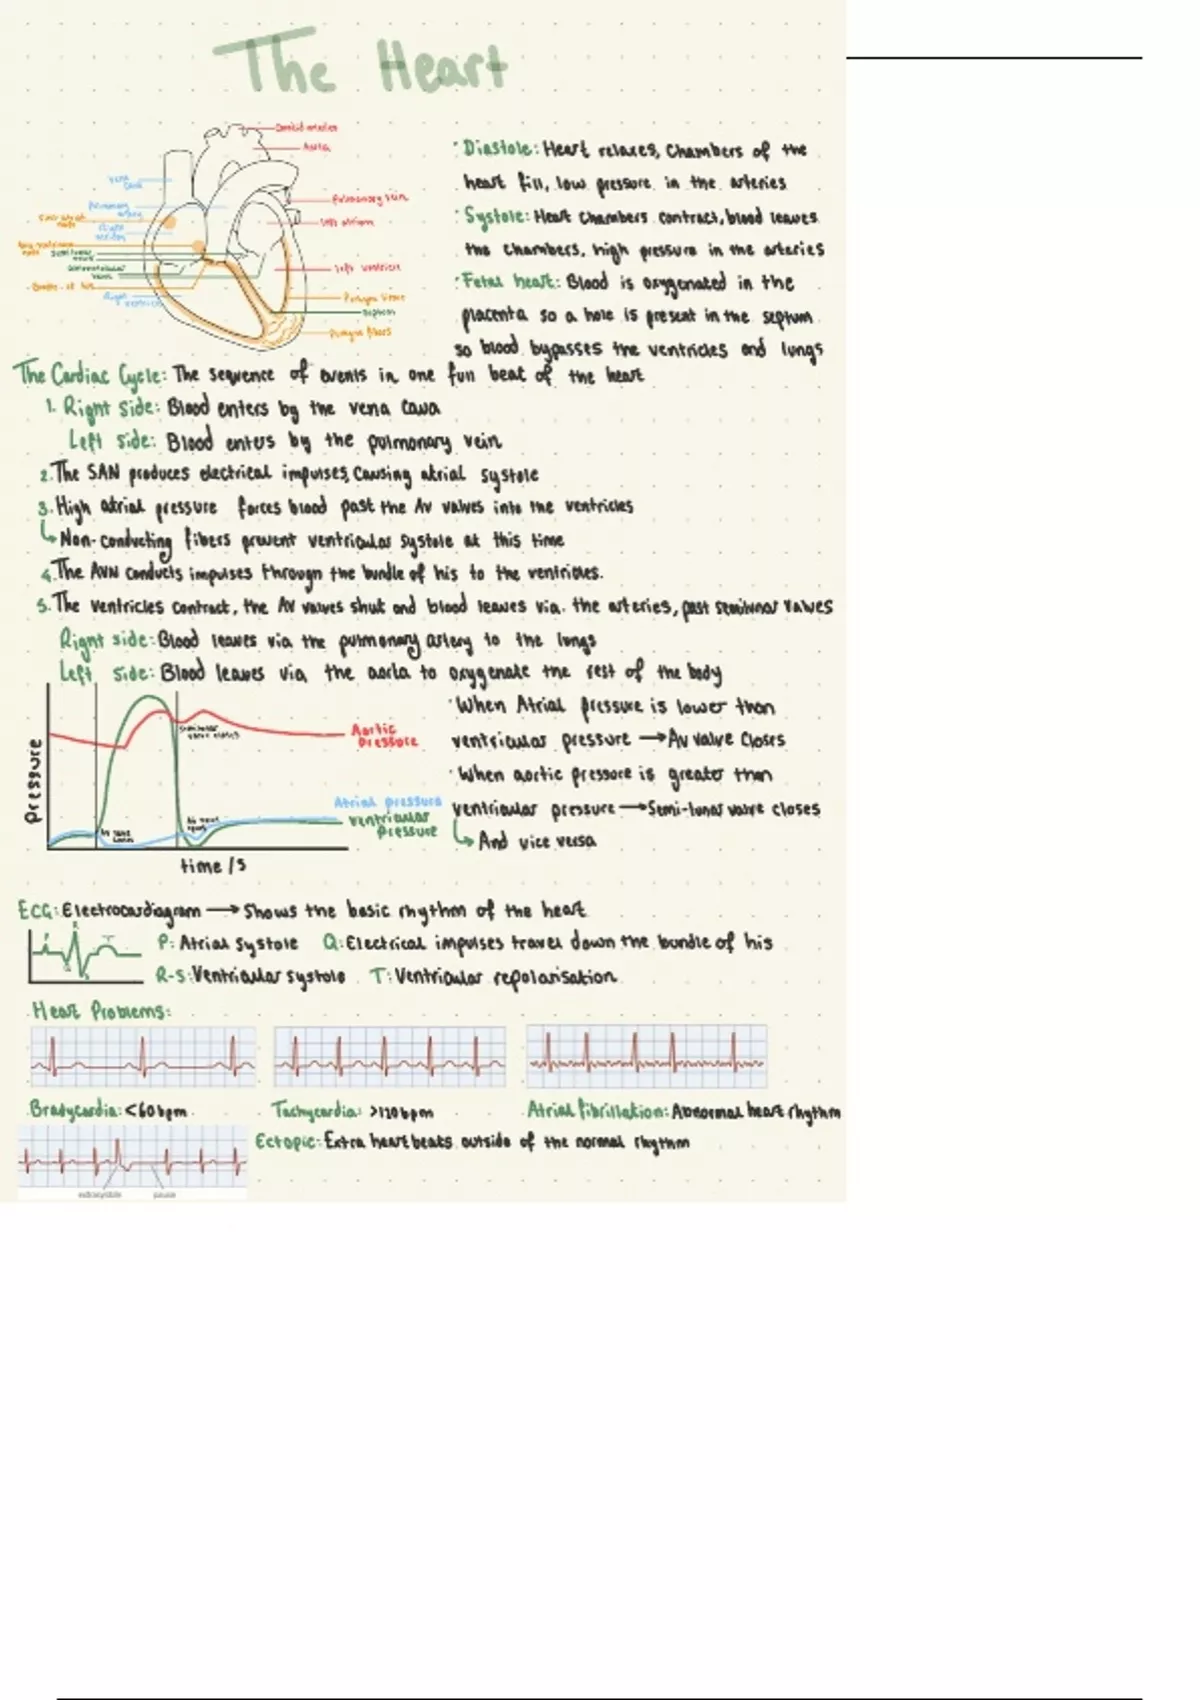 The Heart
Carotid arteries
Aorta
Vena cava
Pulmonary artery
Pulmonary vein
left atrium
left ventricle
Bundle of his
Right ventricle
septum
· Diastole: Heart relaxes, Chambers of the
heart fill, low pressure in the arteries
· Systole: Heart Chambers contract, blood leaves
the chambers, high pressure in the arteries
· Fetal heart: Blood is oxygenated in the
placenta so a hole is present in the septum
so blood bypasses the ventricles and lungs
The Cardiac Cycle: The sequence of events in one full beat of the heart
1. Right side: Blood enters by the vena cava
Left side: Blood enters by the pulmonary vein
2. The SAN produces electrical impulses, Causing atrial systole
3. High atrial pressure forces blood past the AV valves into the ventricles
↳ Non-conducting fibers prevent ventricular systole at this time
4. The AVN conducts impulses through the bundle of his to the ventricles.
5. The ventricles contract, the AV valves shut and blood leaves via the arteries, past semilunar valves
Right side: Blood leaves via the pulmonary artery to the lungs
Left side: Blood leaves via the aorta to oxygenate the rest of the body
Pressure
Semilunar valve closes
Aortic pressure
Atrial pressure
Ventricular pressure
time / s
· When Atrial pressure is lower than
ventricular pressure → AV valve closes
· When aortic pressure is greater than
ventricular pressure → Semi-lunar valve closes
↳ And vice versa
ECG: Electrocardiagram → Shows the basic rhythm of the heart
P: Atrial systole Q: Electrical impulses travel down the bundle of his
R-S: Ventricular systole T: Ventricular repolarisation
Heart Problems:
Bradycardia: <60bpm Tachycardia: >120bpm Atrial fibrillation: Abnormal heart rhythm
Ectopic: Extra heart beats outside of the normal rhythm
extrasystole pause